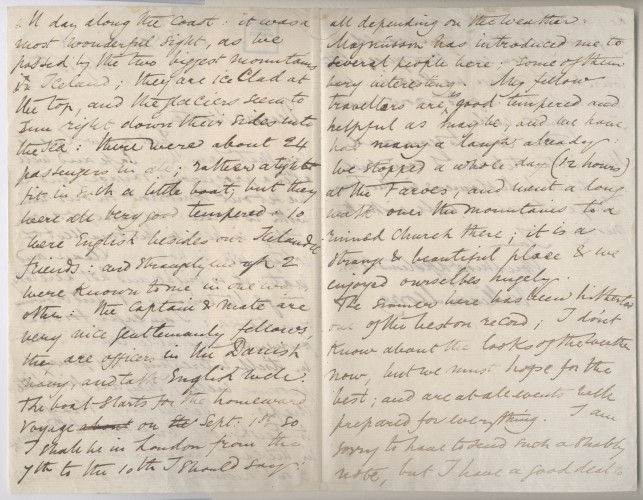 all day along the coast: it was a
most wonderful sight, as we
passed by the two biggest mountains
in Iceland; they are ice clad at
the top, and the glaciers seem to
run right down their sides into
the sea: there were about 24
passengers in all; rather a tight
fit in such a little boat; but they
were all very good tempered: 10
were English besides our Icelandic
friends: and strangely enough 2
were known to me in one way or
other: the captain & mate are
very nice gentlemanly fellows,
they are officers in the Danish
navy, and talk English well.
The boat starts for the homeward
voyage about on the Sept. 1st so
I shall be in London from the
7th to the 10th I should say:
all depending on the weather.
Magnússon has introduced me to
several people here: some of them
very interesting. My fellow
travellers are as good tempered and
helpful as may be, and we have
had many a laugh already.
We stopped a whole day (12 hours)
at the Faroes, and went a long
walk over the mountains to a
ruined church there; it is a
strange & beautiful place & we
enjoyed ourselves hugely.
The summer here has been hitherto
one of the best on record; I don't
know about the looks of the weather
now, but we must hope for the
best; and are at all events well
prepared for everything. I am
sorry to have to send such a shabby
note, but I have a good deal to